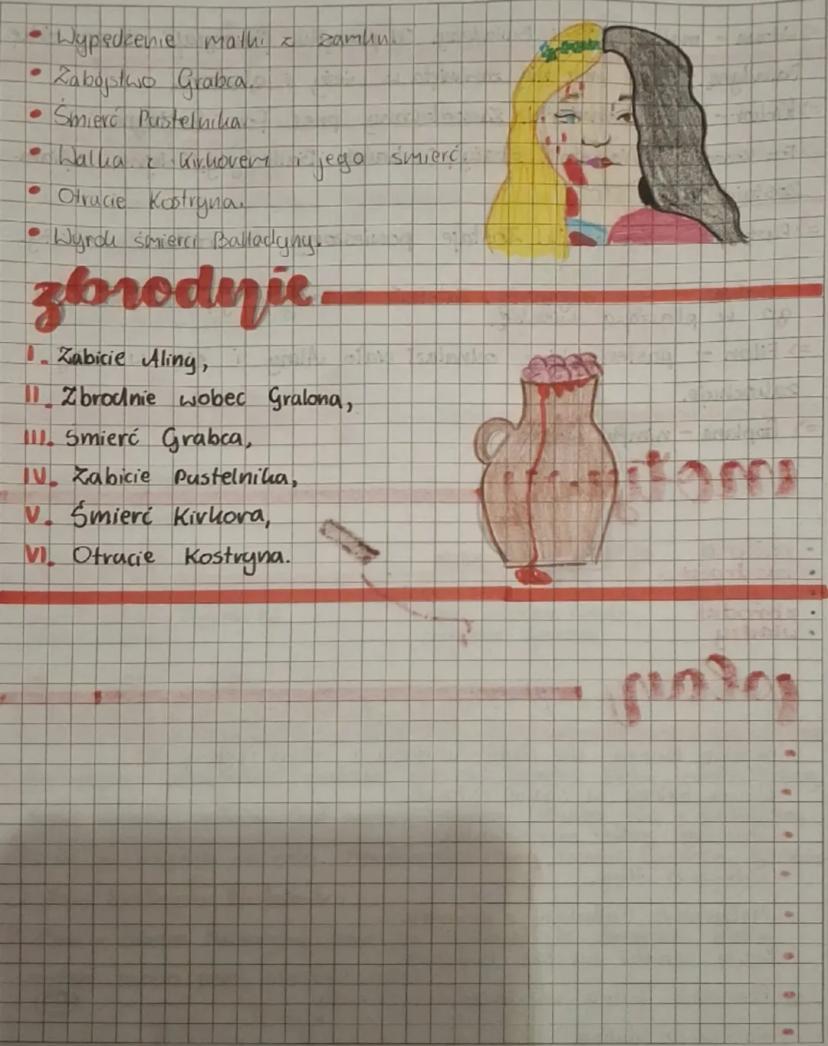 • Wypędzenie matki z zamku.
• Zabójstwo Grabca.
• Śmierć Pustelnika
• Walka z Kirkorem i jego śmierć.
• Otrucie Kostryna.
• Wyrok śmierci Balladyny.
zbrodnie
I. Zabicie Aliny,
II. Zbrodnie wobec Gralona,
III. Śmierć Grabca,
IV. Zabicie Pustelnika,
V. Śmierć Kirkora,
VI. Otrucie Kostryna.